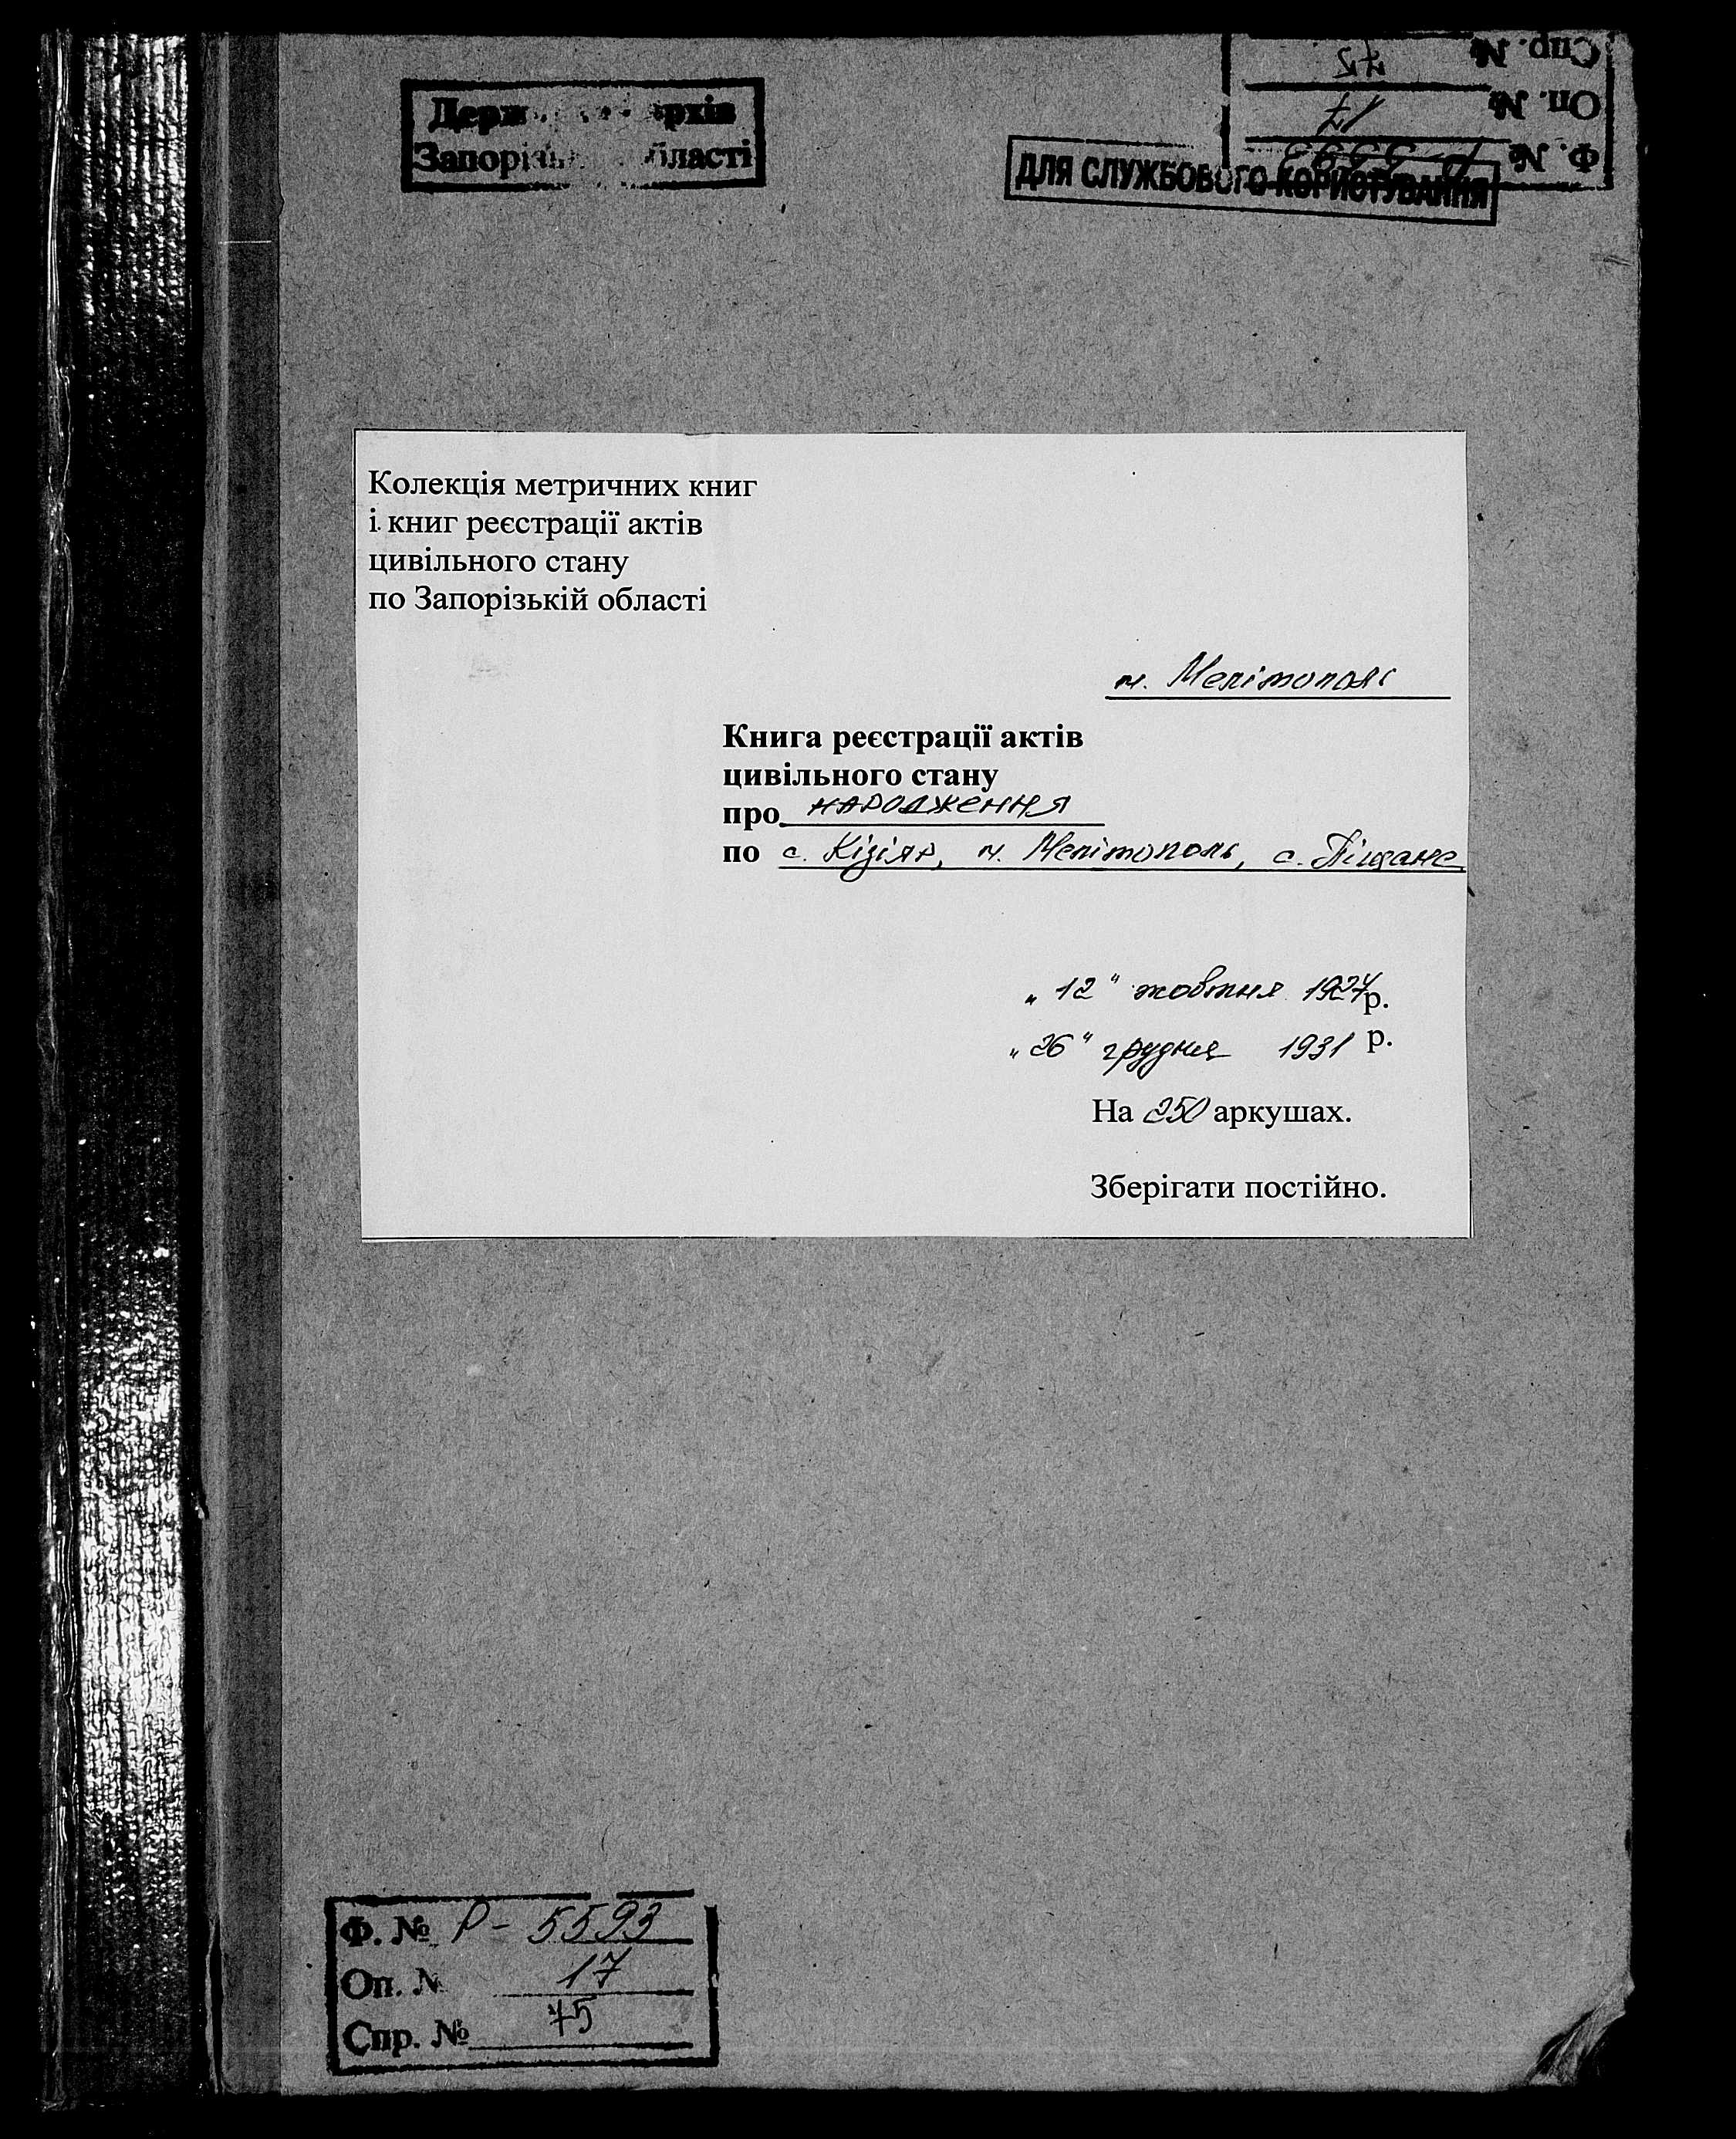 Держ рхів
Запоріз бласті
Спр. №
Оп. № 17
Ф. № Р-5593
ДЛЯ СЛУЖБОВОГО КОРИСТУВАННЯ
Колекція метричних книг
і книг реєстрації актів
цивільного стану
по Запорізькій області
м. Мелітополь
Книга реєстрації актів
цивільного стану
про народження
по с. Кізіяр, м. Мелітополь, с. Піщане
„ 12 “ жовтня 1924 р.
„ 26 “ грудня 1931 р.
На 250 аркушах.
Зберігати постійно.
Ф. № Р-5593
Оп. № 17
Спр. № 75